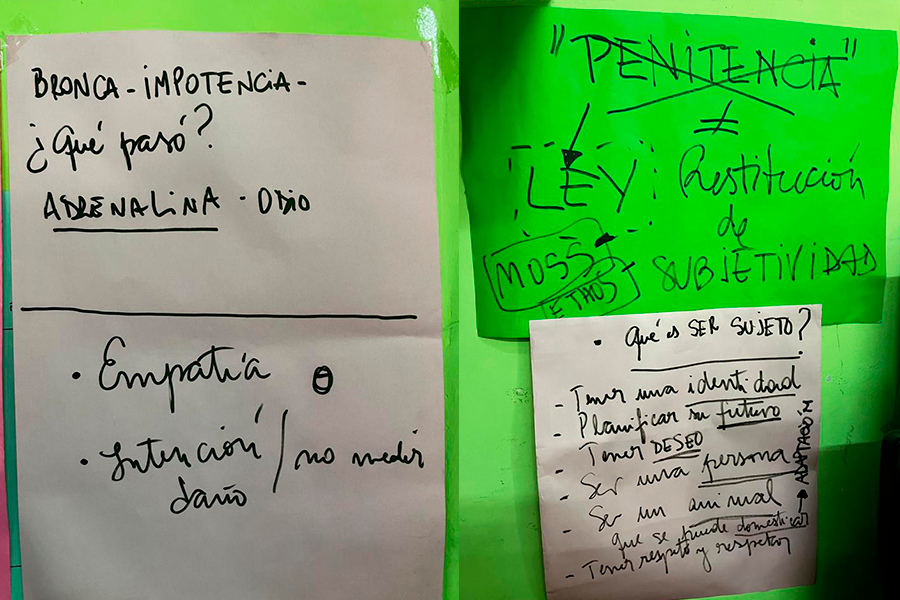 BRONCA - IMPOTENCIA -
¿Qué pasó?
ADRENALINA - ODIO
• Empatía Θ
• Intención / no medir
daño
"PENITENCIA"
≠
LEY : Restitución
de
MOSS SUBJETIVIDAD
ETHOS
• Qué es SER SUJETO?
- Tener una identidad
- Planificar su futuro
- Tener DESEO
- Ser una persona
- Ser un animal
que se puede domesticar → ADAPTACIÓN
- Tener respeto y respetar